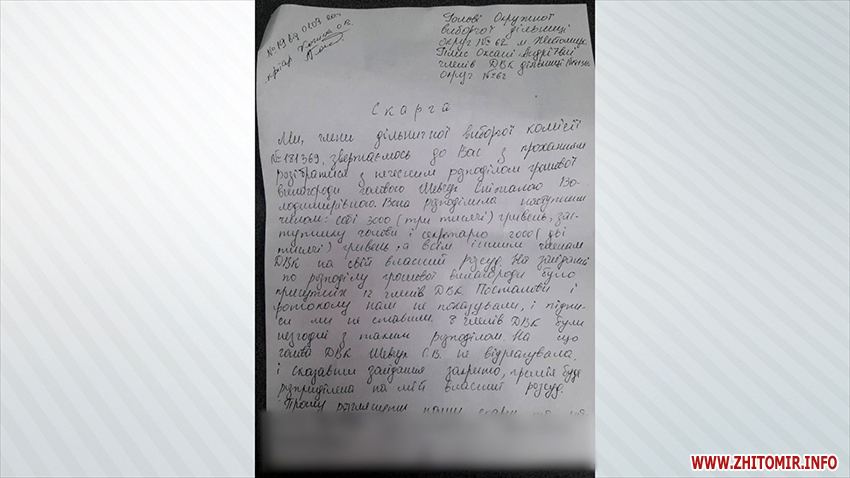 № 19 від
Голові Окружної
виборчої дільниці
округ № 62 м. Житомира
Оксані Андріївні
членів ДВК дільниці
округ №62
Скарга
Ми, члени дільничної виборчої комісії
№181369, звертаємось до Вас з проханням
розібратися з нечесним розподілом грошової
винагороди головою Шевчук Світланою Во-
лодимирівною. Вона розподілила наступним
чином: собі 3000 (три тисячі) гривень, зас-
тупнику голови і секретарю 2000 (дві
тисячі) гривень, а всім іншим членам
ДВК на свій власний розсуд. На засіданні
по розподілу грошової винагороди було
присутніх 12 членів ДВК. Постанови і
протоколу нам не показували, і підпи-
си ми не ставили. 8 членів ДВК були
незгодні з таким розподілом. На що
голова ДВК Шевчук С.В. не відреагувала,
і сказавши засідання закрито, премія буде
розприділена на мій власний розсуд.
Прошу нашу скаргу
WWW.ZHITOMIR.INFO